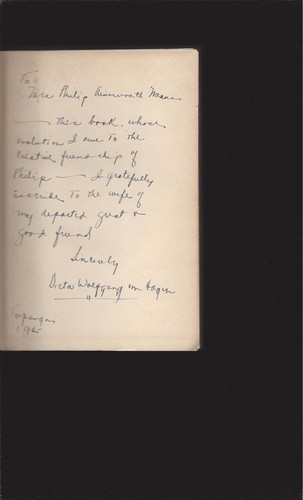 To
Mrs Philip Ainsworth Means
— This book, whose
evolution I owe to the
creative friendship of
Philip — I gratefully
inscribe to the wife of
my departed great &
good friend
Sincerely
Victor Wolfgang von Hagen
Topanga